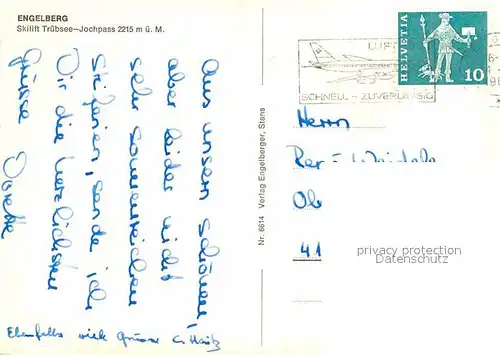 ENGELBERG
Skilift Trübsee—Jochpass 2215 m ü. M.
Aus unsern schönen,
aber leider nicht
sehr sonnenreichen
Skiferien, sende ich
Dir die herzlichsten
Grüsse Dorette
Ebenfalls viele Grüsse
Nr. 6614 Verlag Engelberger, Stans
LUFT
SCHNELL - ZUVERLÄSSIG
HELVETIA
10
Herrn
Ob
41
privacy protection
Datenschutz